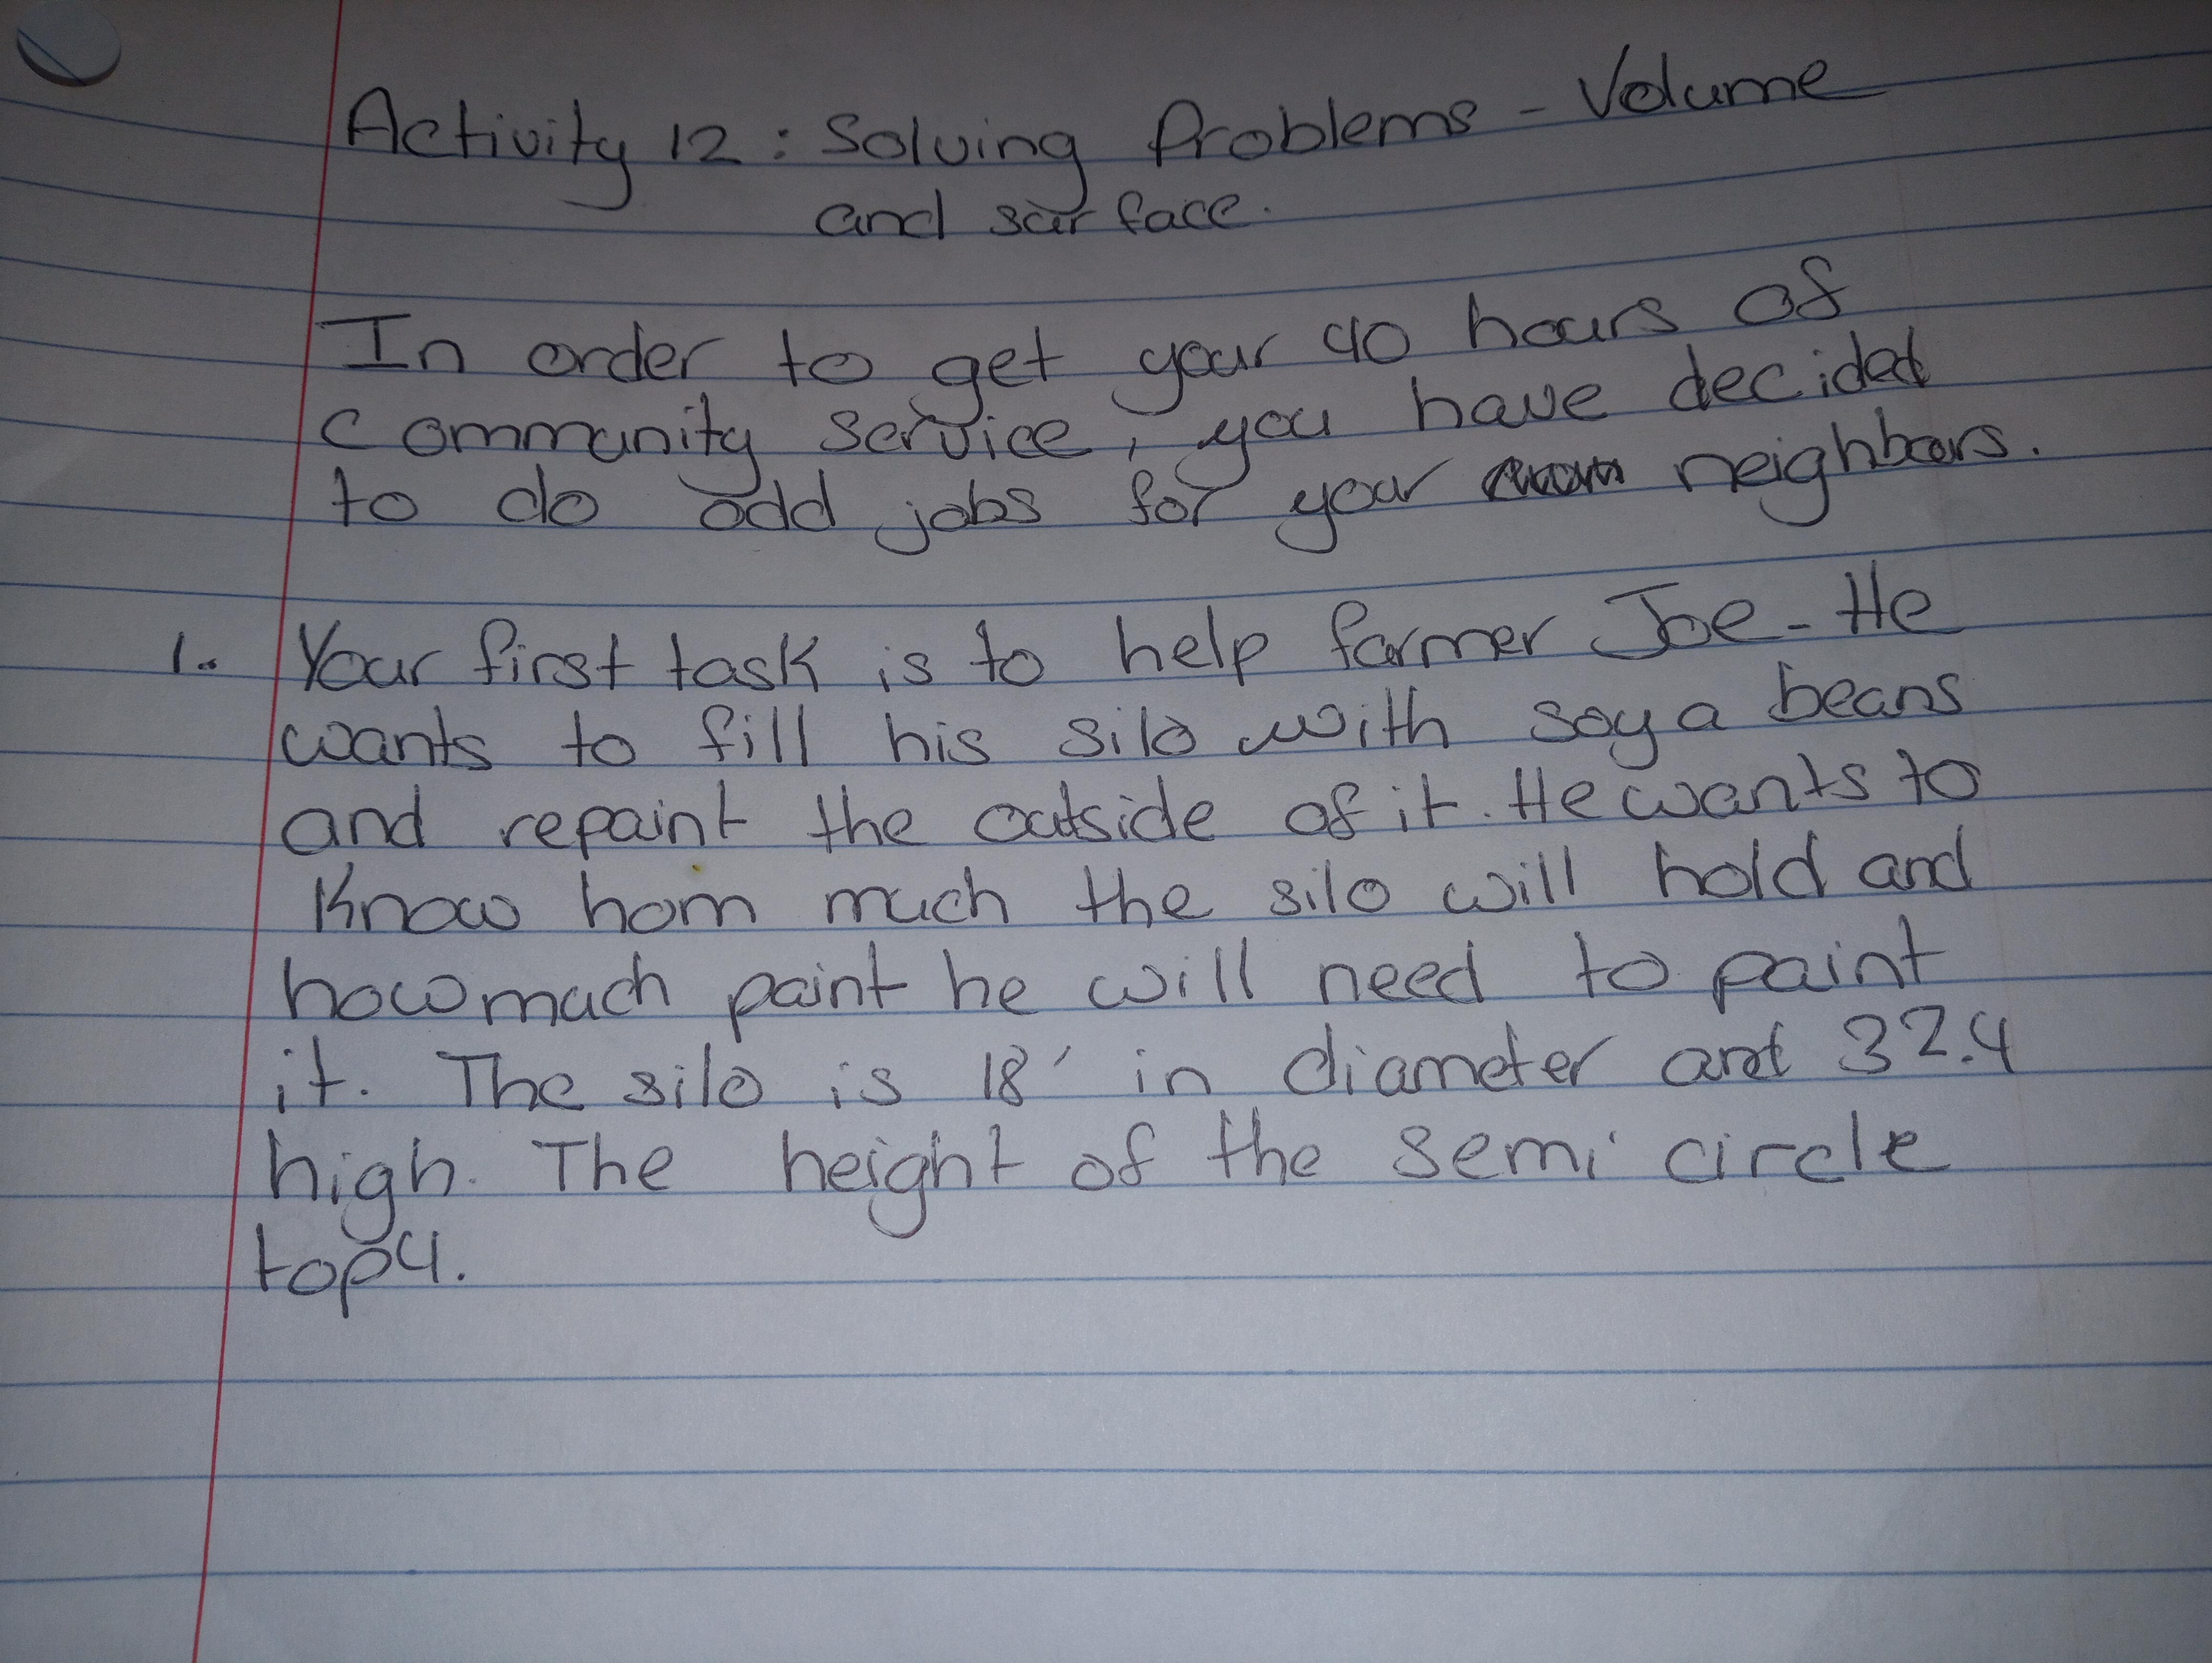 Activity 12: Solving Problems - Volume
and surface.
In order to get your 40 hours of
community service, you have decided
to do odd jobs for your neighbors.
1. Your first task is to help farmer Joe. He
wants to fill his silo with soya beans
and repaint the outside of it. He wants to
Know hom much the silo will hold and
how much paint he will need to paint
it. The silo is 18' in diameter and 32.4
high. The height of the semi circle
top 4.